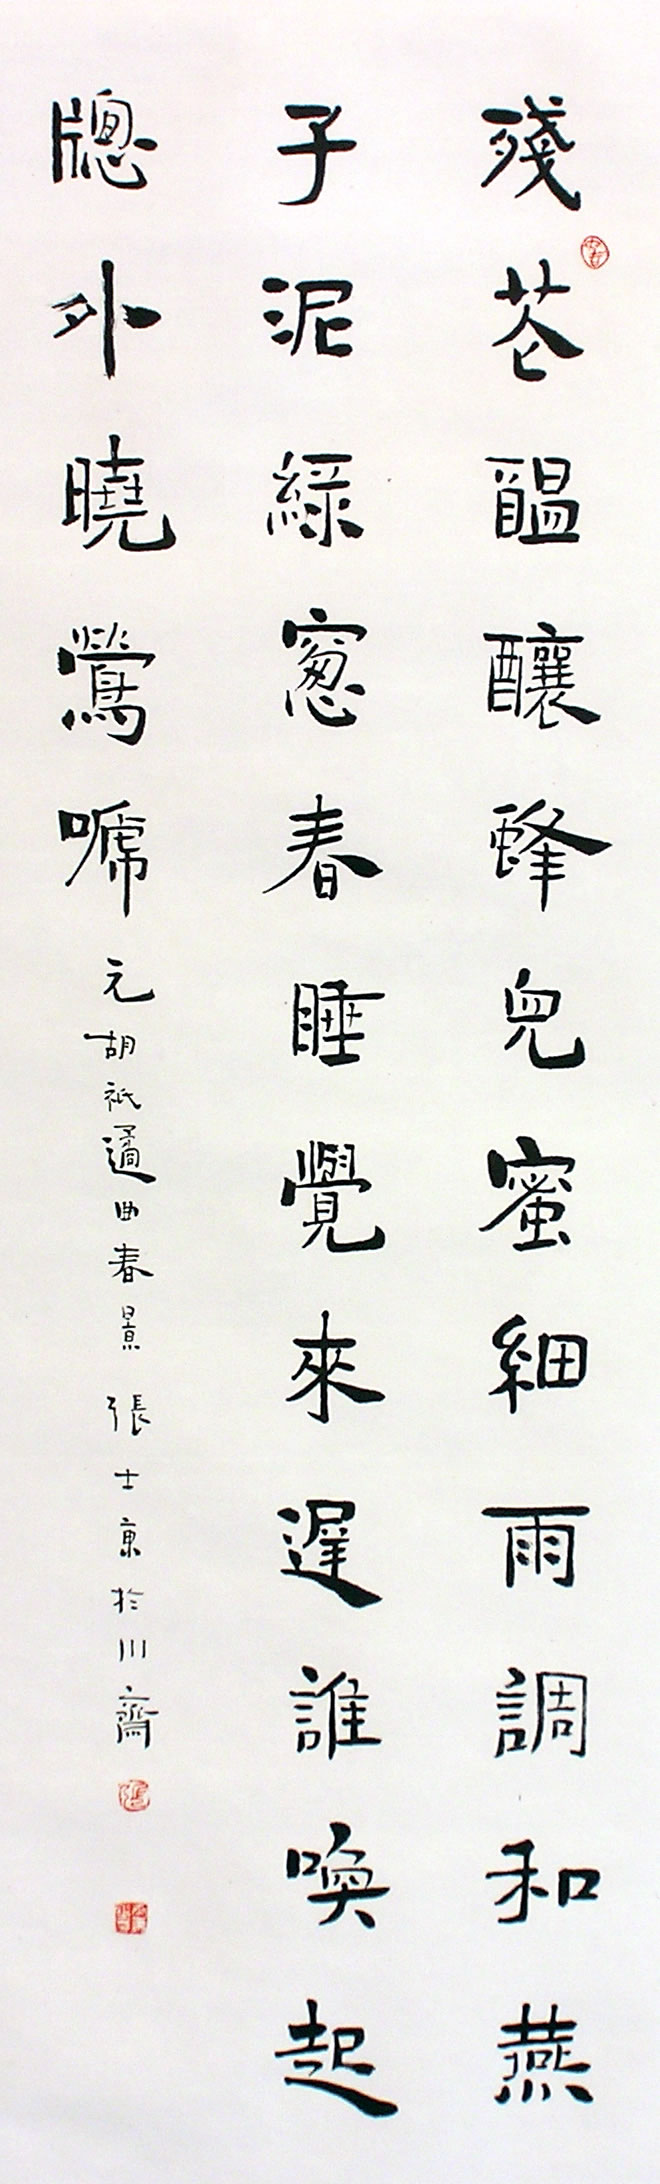 殘花醞釀蜂兒蜜細雨調和燕
子泥綠窻春睡覺來遲誰喚起
牕外曉鶯嗁 元胡祗遹曲春景 張士於川齋